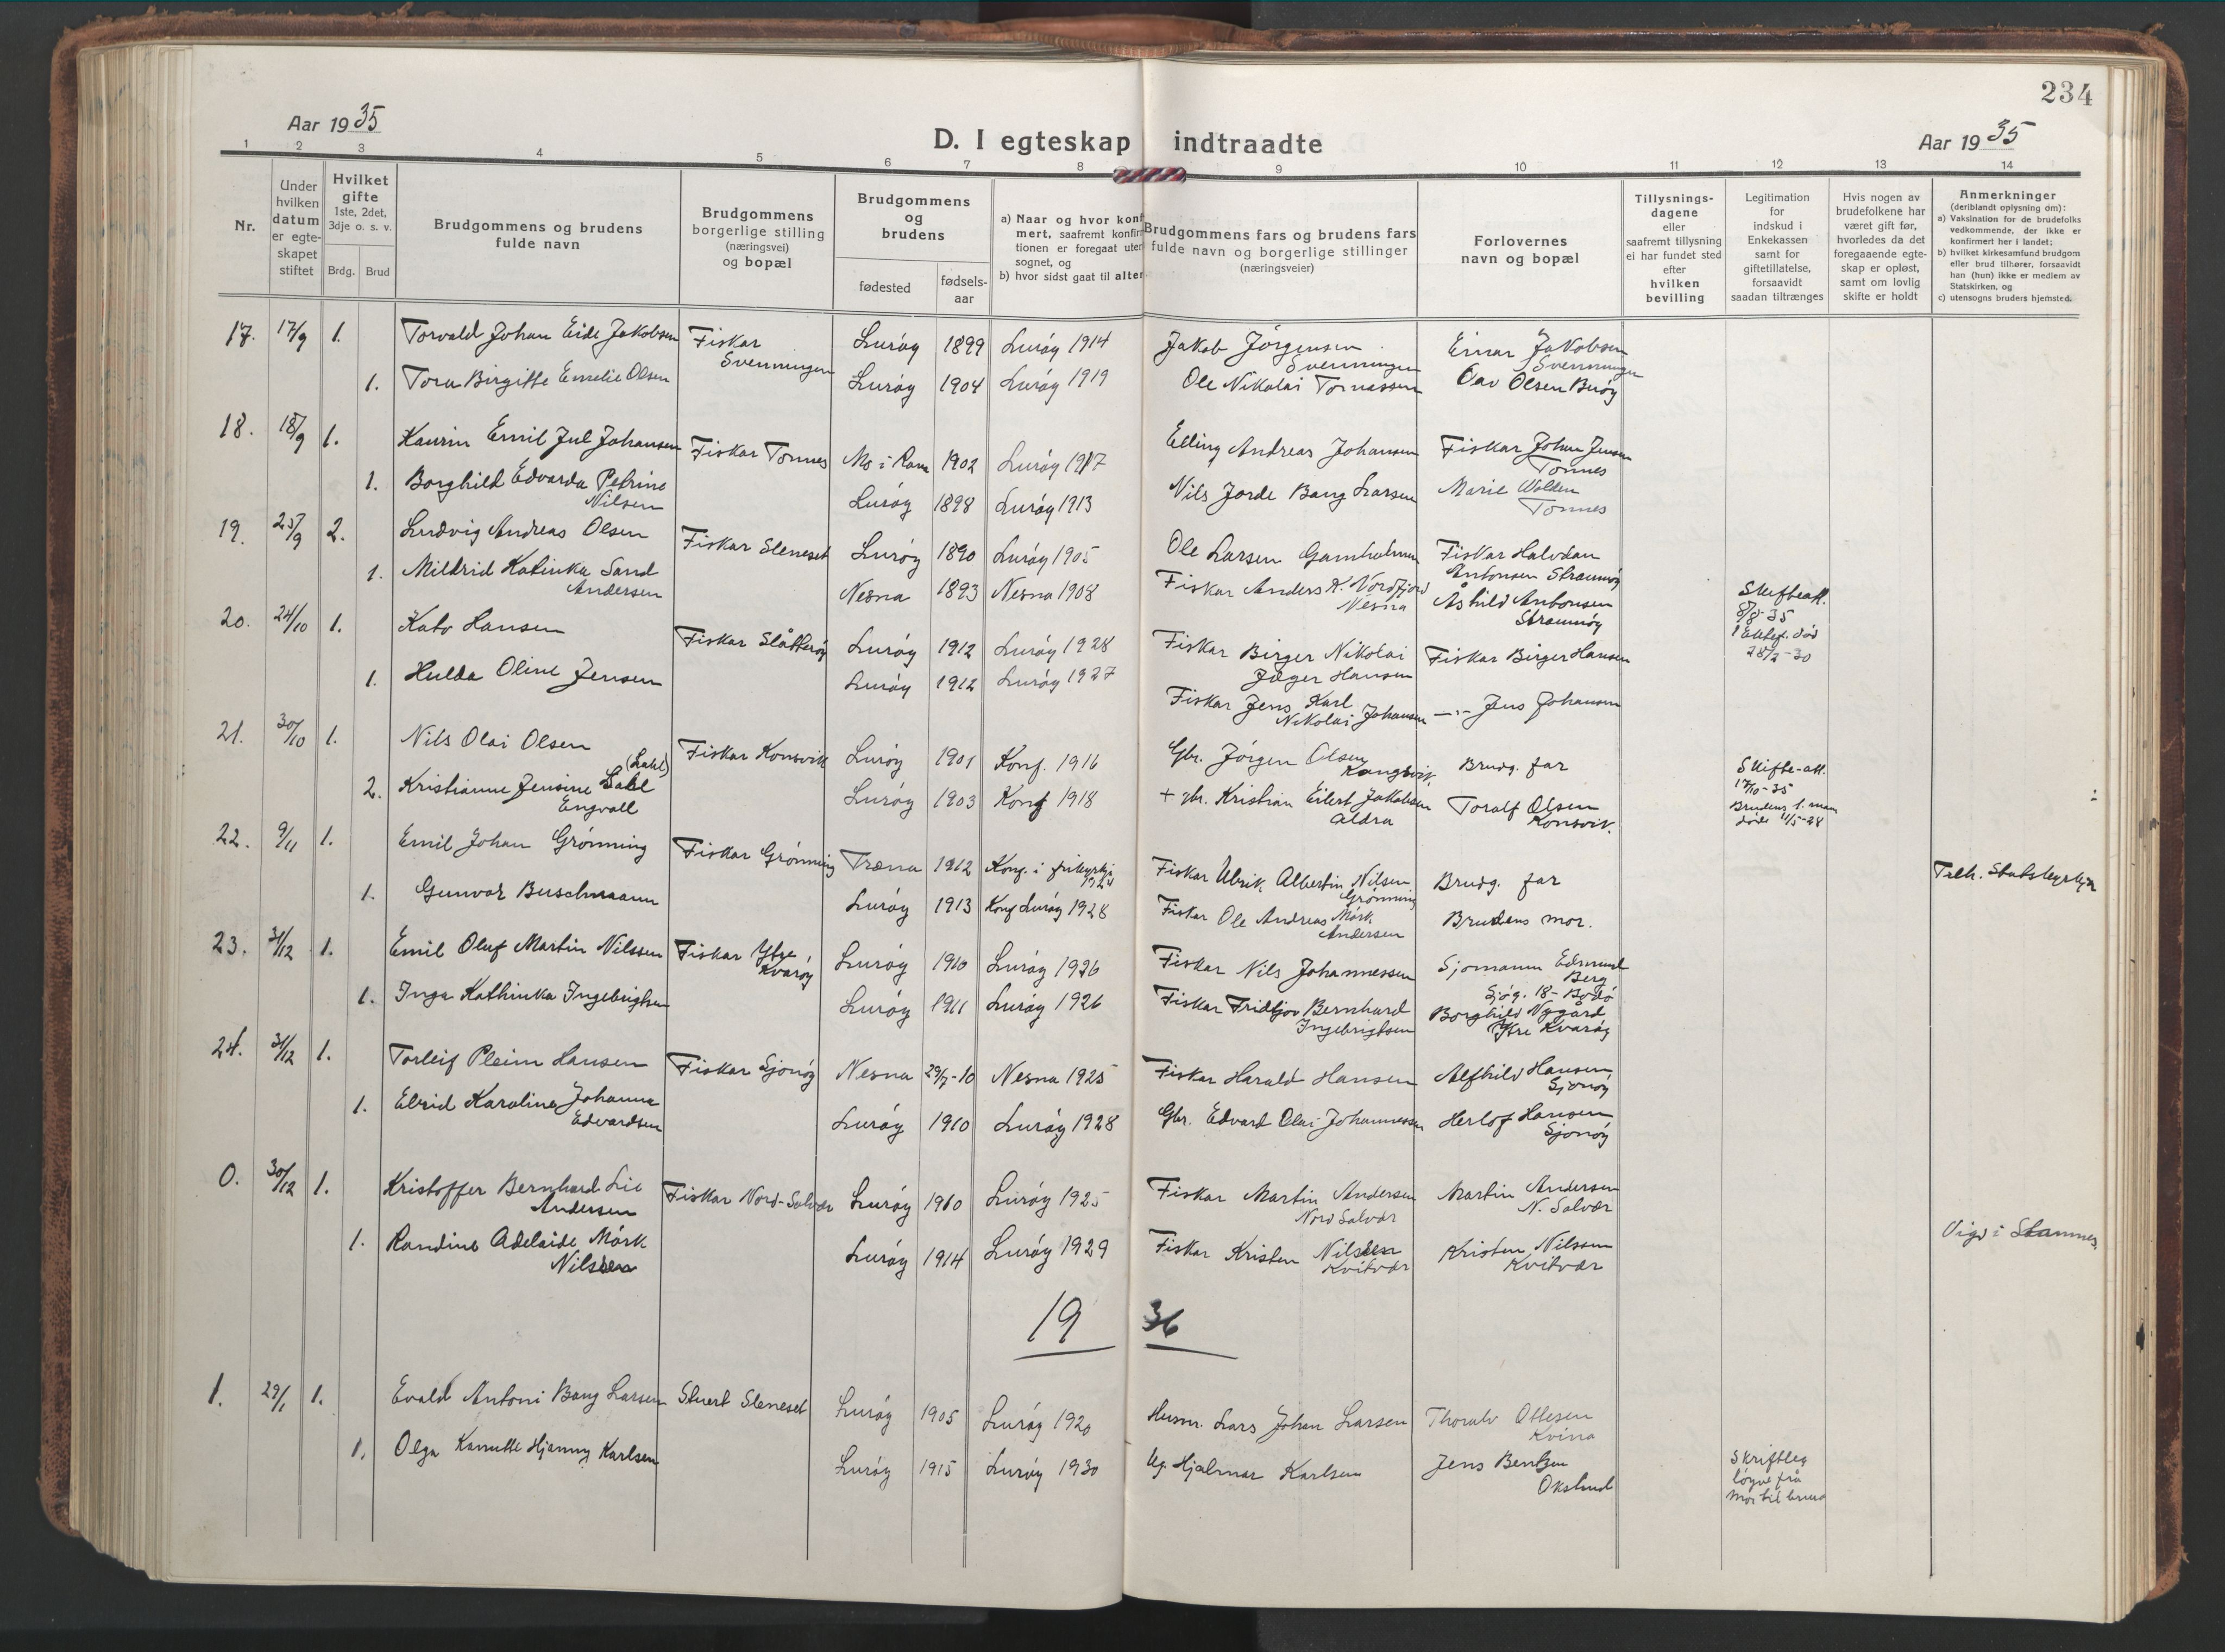 234
Aar 1935
D. I egteskap indtraadte
Aar 1935
1 2 3 4 5 6 7 8 9 10 11 12 13 14
Nr.
Under hvilken datum er egte-skapet stiftet
Hvilket gifte 1ste, 2det, 3dje o. s. v.
Brdg. Brud
Brudgommens og brudens fulde navn
Brudgommens borgerlige stilling (næringsvei) og bopæl
Brudgommens og brudens
fødested
fødsels-aar
a) Naar og hvor konf
mert, saafremt konfir
tionen er foregaat uten
sognet, og
b) hvor sidst gaat til alter
Brudgommens fars og brudens fars
fulde navn og borgerlige stillinger
(næringsveier)
Forlovernes navn og bopæl
Tillysnings-dagene eller saafremt tillysning ei har fundet sted efter hvilken bevilling
Legitimation for indskud i Enkekassen samt for giftetillatelse, forsaavidt saadan tiltrænges
Hvis nogen av brudefolkene har været gift før, hvorledes da det foregaaende egte-skap er opløst, samt om lovlig skifte er holdt
Anmerkninger
(deriblandt oplysning om):
a) Vaksination for de brudefolks vedkommende, der ikke er konfirmert her i landet;
b) hvilket kirkesamfund brudgom eller brud tilhører, forsaavidt han (hun) ikke er medlem av Statskirken, og
c) utensogns bruders hjemsted.
17. 17/9 1. Torvald Johan Eide Jakobsen Fiskar Svenningen Lurøy 1899 Lurøy 1914 Jakob Jørgensen Svenningen Einar Jakobsen Svenningen
1. Tora Birgitte Emelie Olsen Lurøy 1904 Lurøy 1919 Ole Nikolai Tomassen Olsen Buøy
18. 18/9 1. Kaurin Emil Jul Johansen Fiskar Tonnes Mo i Rana 1902 Lurøy 1917 Elling Andreas Johansen Fiskar Johan Jensen Tonnes
1. Borghild Edvarda Petrine Nilsen Lurøy 1898 Lurøy 1913 Nils Jorde Bang Larsen Marie Wolden Tonnes
19. 25/9 2. Ludvig Andreas Olsen Fiskar Sleneset Lurøy 1890 Lurøy 1905 Ole Larsen Gamholmen Fiskar Halvdan Antonsen Straumøy
1. Mildrid Katinka Sand Andersen Nesna 1893 Nesna 1908 Fiskar Anders K. Nordfjord Nesna Åshild Antonsen Straumøy
Skifteatt.
8/8-35
1 Ektef. død
28/2-30
20. 24/10 1. Kato Hansen Fiskar Slåtterøy Lurøy 1912 Lurøy 1928 Fiskar Birger Nikolai Jæger Hansen Fiskar Birger Hansen
1. Hulda Oline Jensen Lurøy 1912 Lurøy 1927 Fiskar Jens Karl Nikolai Johansen —"— Jens Johansen
21. 30/10 1. Nils Olai Olsen Fiskar Konsvik Lurøy 1901 Konf. 1916 Gbr. Jørgen Olsen Kongsvik Brudg. far
2. Kristianne Jensine Dahl (Dahl) Engvall Lurøy 1903 Konf 1918 + gbr. Kristian Eilert Jakobsen Aldra Toralf Olsen Konsvik.
Skifte-att.
17/10-35
Brudens 1. mann
døde 11/5-28
22. 9/11 1. Emil Johan Grønning Fiskar Grønning Træna 1912 Konf. i frikyrkja Fiskar Ulrik Albertin Nilsen Grønning Brudg. far
Tilh. Statskyrkja
1. Gunvor Buschmann Lurøy 1913 Konf Lurøy 1928 Fiskar Ole Andreas Mørk Andersen Brudens mor.
23. 31/12 1. Emil Oluf Martin Nilssen Fiskar Ytre Kvarøy Lurøy 1910 Lurøy 1926 Fiskar Nils Johannessen Sjømann Edmund Berg Sjøg. 18 - Bodø
1. Inga Kathinka Ingebrigtsen Lurøy 1911 Lurøy 1926 Fiskar Fridtjov Bernhard Ingebrigtsen Borghild Nygård Ytre Kvarøy
24. 31/12 1. Torleif Pleim Hansen Fiskar Sjonøy Nesna 29/7-10 Nesna 1925 Fiskar Harald Hansen Alfhild Hansen Sjonøy
1. Elsrid Karoline Johanna Edvardsen Lurøy 1910 Lurøy 1928 Gbr. Edvard Olai Johannessen Herlof Hansen Sjonøy
0. 30/12 1. Kristoffer Bernhard Lie Andersen Fiskar Nord-Solvær Lurøy 1910 Lurøy 1925 Fiskar Martin Andersen Nord Solvær Martin Andersen N. Solvær
1. Randine Adelaide Mørk Nilssen Lurøy 1914 Lurøy 1929 Fiskar Kristen Nilssen Kvitvær Kristen Nilssen Kvitvær
Vigd i Stamnes.
19 36
1. 29/1 1. Evald Antoni Bang Larsen Stuert Sleneset Lurøy 1905 Lurøy 1920 Husm. Lars Johan Larsen Thoralv Ottesen Kvina
1. Olga Kamitte Hjanny Karlsen Lurøy 1915 Lurøy 1930 Ug. Hjalmar Karlsen Jens Bentzen Okslund
Skriftleg
løyve frå
mor til brura